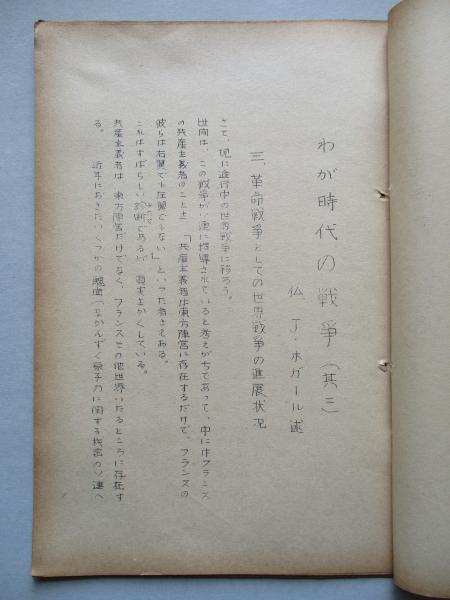 わが時代の戦争（其三）
仏 J・ホガール述
三 革命戦争としての世界戦争の進展状况
さて、現に進行中の世界戦争に移ろう。
世間は、この戦争がソ連に指導されていると考えがちであって、中にはフランス
の共産主義者のことを「共産主義者は東方陣営に存在するだけで、フランスの
彼らは右翼でも左翼でもない」といった者さえある。
これはすばらしい診断であるが、真実をかくしている。
共産主義者は東方陣営だけでなく、フランスその他世界いたるところに存在す
る。 近年におきたいくつかの醜聞（なかんずく原子力に関する機密のソ連へ